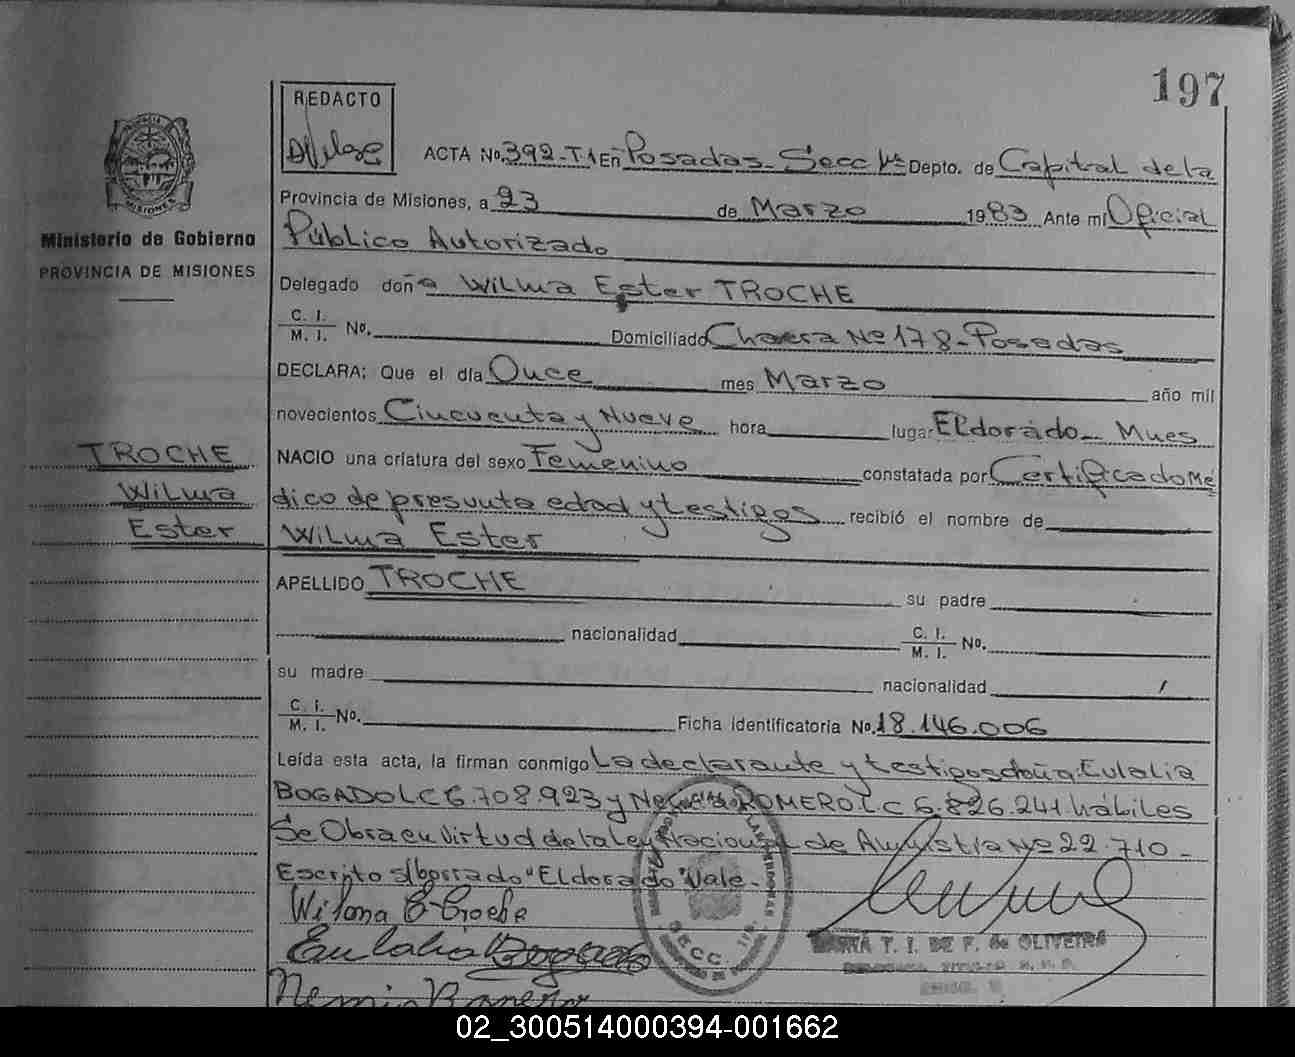 197
REDACTO
ACTA No. 392-T1 En Posadas- Secc 1ª Depto. de Capital de la
Provincia de Misiones, a 23 de Marzo 1983 Ante mi Oficial
Público Autorizado
Delegado doña Wilma Ester TROCHE
C. I.
M. I. No. Domiciliado Chacra Nº 178-Posadas
DECLARA: Que el día Once mes Marzo año mil
novecientos Cincuenta y Nueve hora lugar ELdorado- Mnes
NACIO una criatura del sexo Femenino constatada por Certificado Mé
dico de presunta edad y testigos recibió el nombre de
Wilma Ester
APELLIDO TROCHE su padre
nacionalidad C. I.
M. I. No.
su madre nacionalidad
C. I.
M. I. No. Ficha identificatoria No. 18.146.006
Leída esta acta, la firman conmigo La declarante y testigos doña: Eulalia
BOGADO LC 6.708.923 y ROMERO L.C 6.826.241 hábiles
Se Obra en virtud de la ley Nacional de Amnistia Nº 22.710-
Escrito s/borrado "Eldorado" Vale-
Wilma E Troche
Eulalia Bogado
MISIONES
Ministerio de Gobierno
PROVINCIA DE MISIONES
TROCHE
Wilma
Ester
SECC.
MARIA T. I. DE F. de OLIVEIRA
02_300514000394-001662